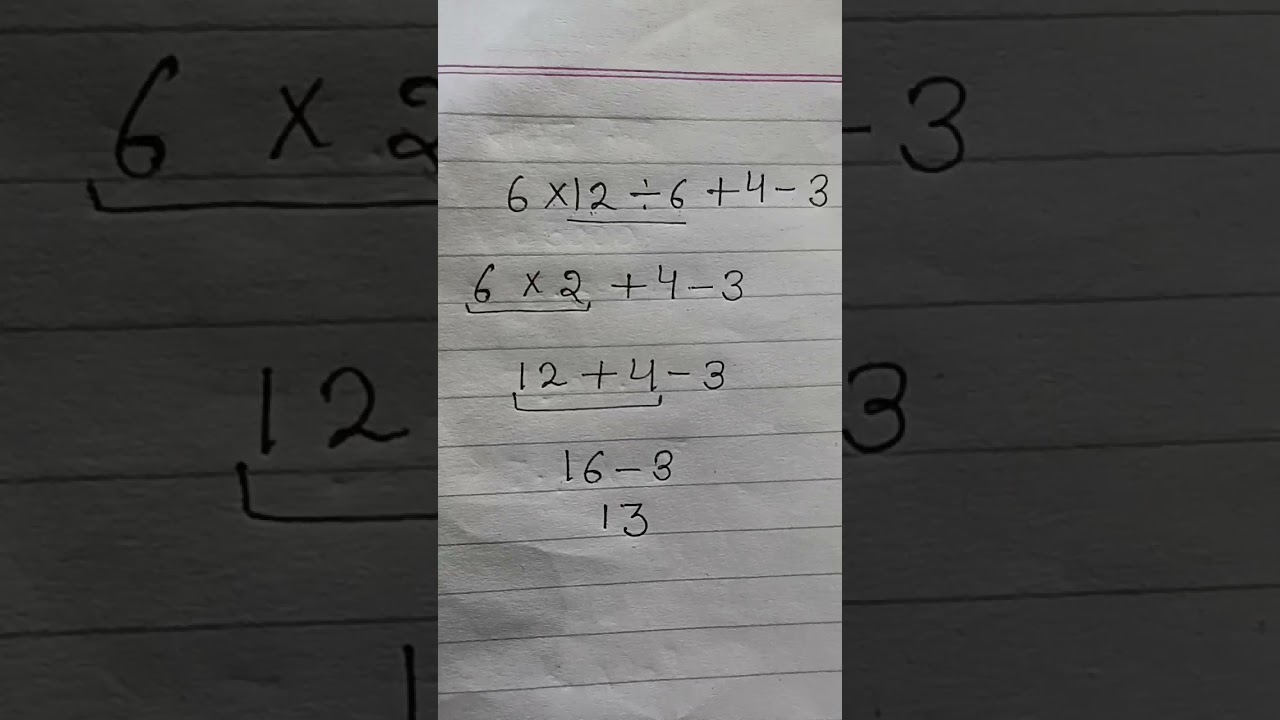 6 × 12 ÷ 6 + 4 - 3
6 × 2 + 4 - 3
12 + 4 - 3
16 - 3
13